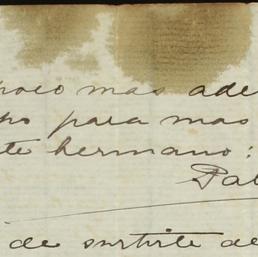 poco mas ade
po para mas
te hermano:
Pab
de surtirte de